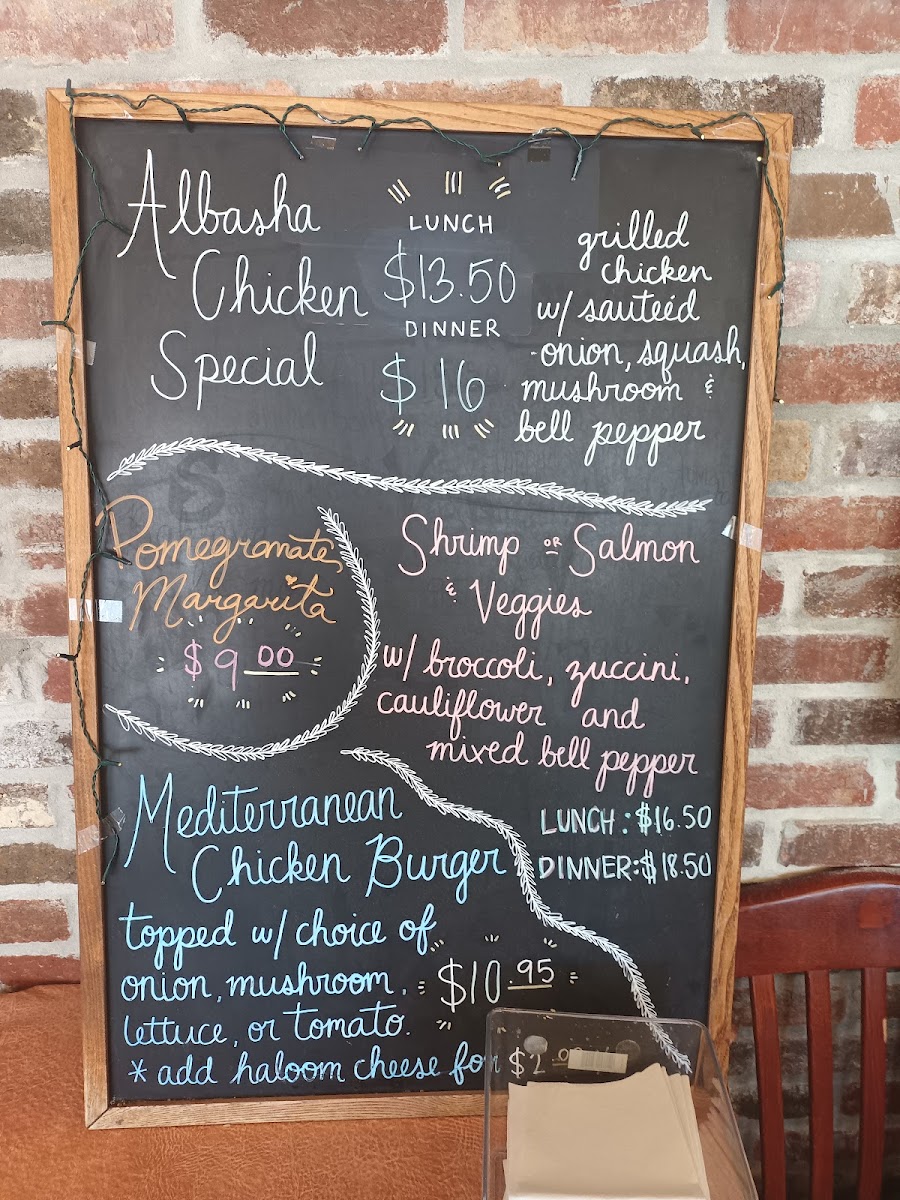 Albasha
Chicken
Special
LUNCH
$13.50
DINNER
$16
grilled
chicken
w/ sauteéd
onion, squash,
mushroom &
bell pepper
Pomegranate
Margarita
$9.00
Shrimp OR Salmon
& Veggies
w/ broccoli, zuccini,
cauliflower and
mixed bell pepper
LUNCH: $16.50
DINNER: $18.50
Mediterranean
Chicken Burger
topped w/ choice of
onion, mushroom,
lettuce, or tomato.
$10.95
* add haloom cheese for $2.00